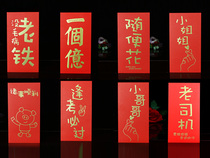 老铁
没毛病
一個億
隨便花
小姐姐
逢考必过
小哥哥
老司机